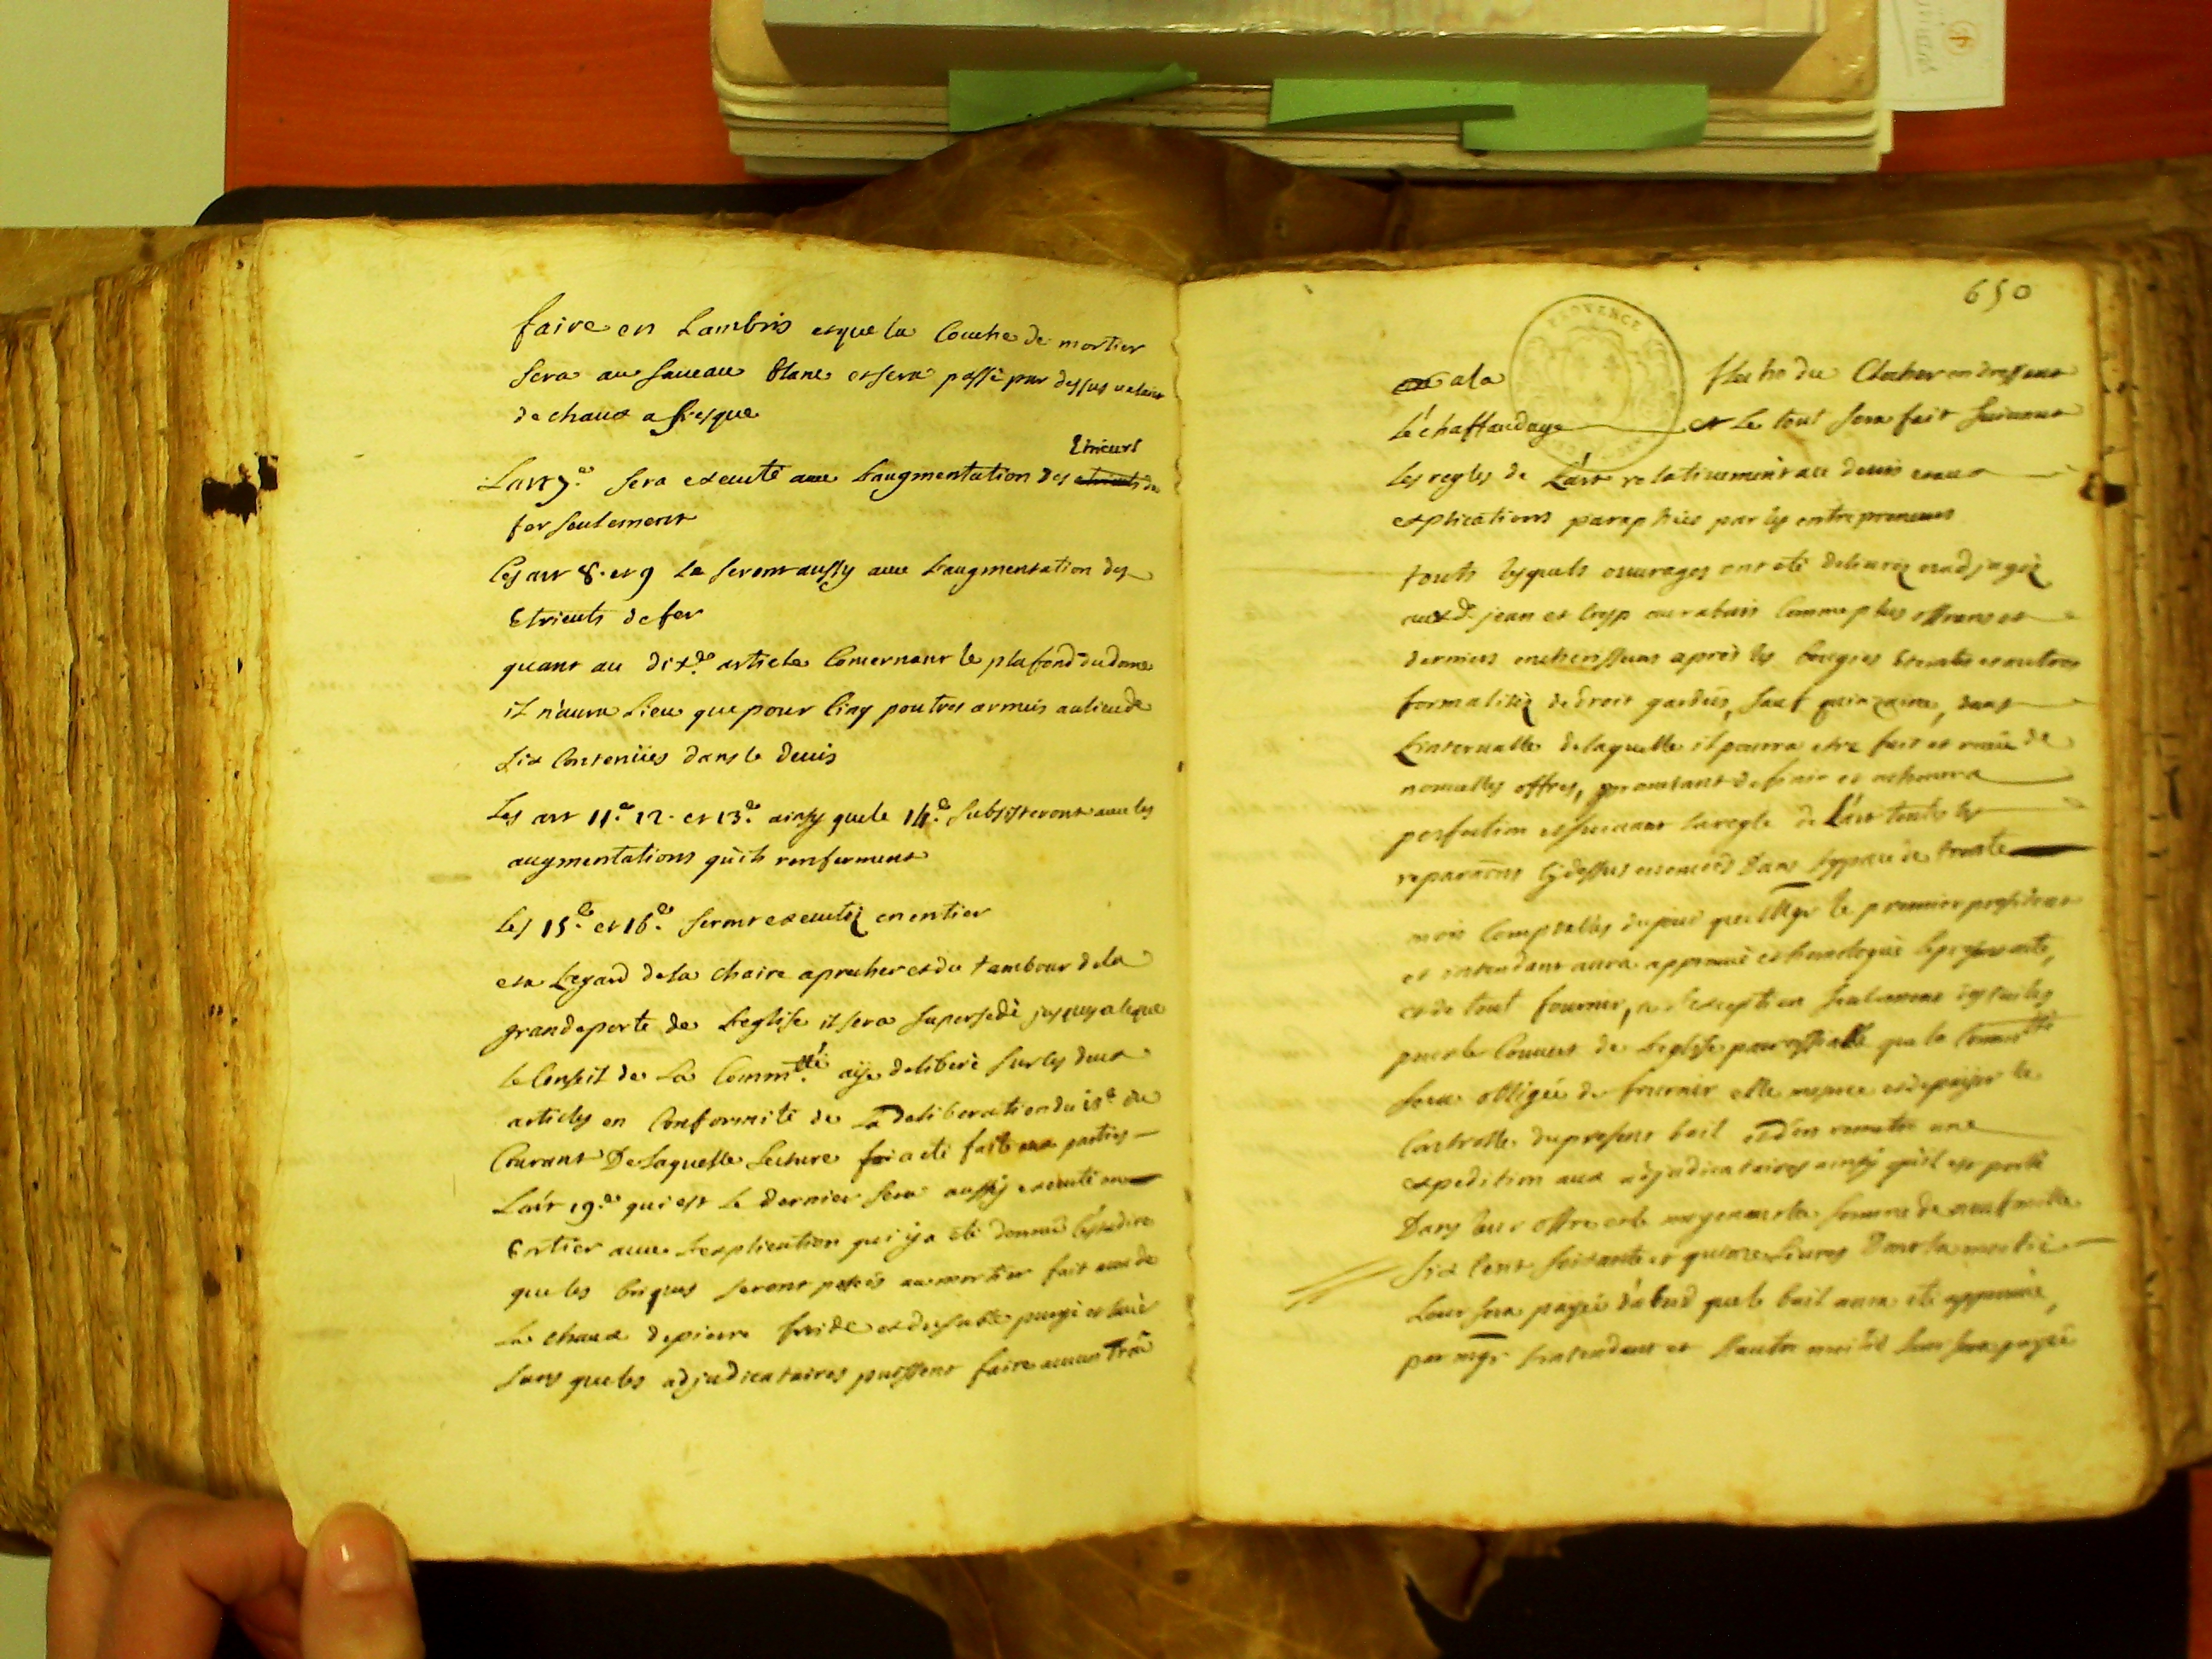 faire en Lambris et que la Couche de mortier
sera au sameau blanc et sera passé par dessus un lait
de chaux a fresque
Etrieurs
L'art 7.e sera executé avec L'augmentation des etrieuts de
fer seulement
Les art 8. et 9 Le seront aussy avec L'augmentation des
Etrieuts de fer
quant au dix.e article Concernant le plafond du dome
il n'aura Lieu que pour Cinq poutres armeés au lieu de
six Contenües dans le devis
Les art 11.e 12. et 13.e ainsy que le 14.e subsisteront avec les
augmentations qu'ils renferment
Les 15.e et 16.e seront executéz en entier
et a L'egard de la chaire a precher et du tambour de la
grande porte de L'eglise il sera supersedé jusques a ce que
le Conseil de La Comm.té aÿe deliberé sur les deux
articles en Conformité de La deliberation du 18.e du
Courant De laquelle Lecture a eté faite aux parties
L'art 19.e qui est Le dernier sera aussy executé en
Entier avec L'explication qui ÿ a eté donneé C'est a dire
que les briques seront poseés au mortier fait avec de
La chaux de pierre froide et du sable purgé et lavé
sans que les adjudicataires puissent faire aucun trou
650
PROVENCE
a la fleche du Clocher en dressant
L'echaffaudage et Le tout sera fait suivant
Les regles de L'art relativement au devis et aux
explications paraphées par les entrepreneurs
touts lesquels ouvrages ont eté delivréz et adjugéz
auxd. jean et Crysp au rabais Comme plus offrans et
derniers encherisseurs après les bougies Eteintes et autres
formalitéz de droit gardeés, sauf quinzaine, dans
L'intervalle de laquelle il pourra etre fait et receu de
nouvelles offres, promettant de finir et achever a
perfection et suivant la regle de L'art toutes les
reparaons cy dessus enonceés Dans L'espace de trente
mois Comptables du jour que Mgr le premier president
et intendant aura approuvé et homologué le present acte,
et de tout fournir, a L'exception seulement des tuiles
pour le Couvert de L'eglise parroissialle que la Commté
sera obligeé de fournir elle meme et de payer le
Controlle du present bail et d'en remettre une
expedition aux adjudicataires ainsy qu'il est porté
Dans leur offre et le moyennant la somme de neuf mille
six Cent soixante et quinze Livres Dont la moitié
Leur sera payeé d'abord que le bail aura eté approuvé,
par mgr L'intendant et L'autre moitié leur sera payeé